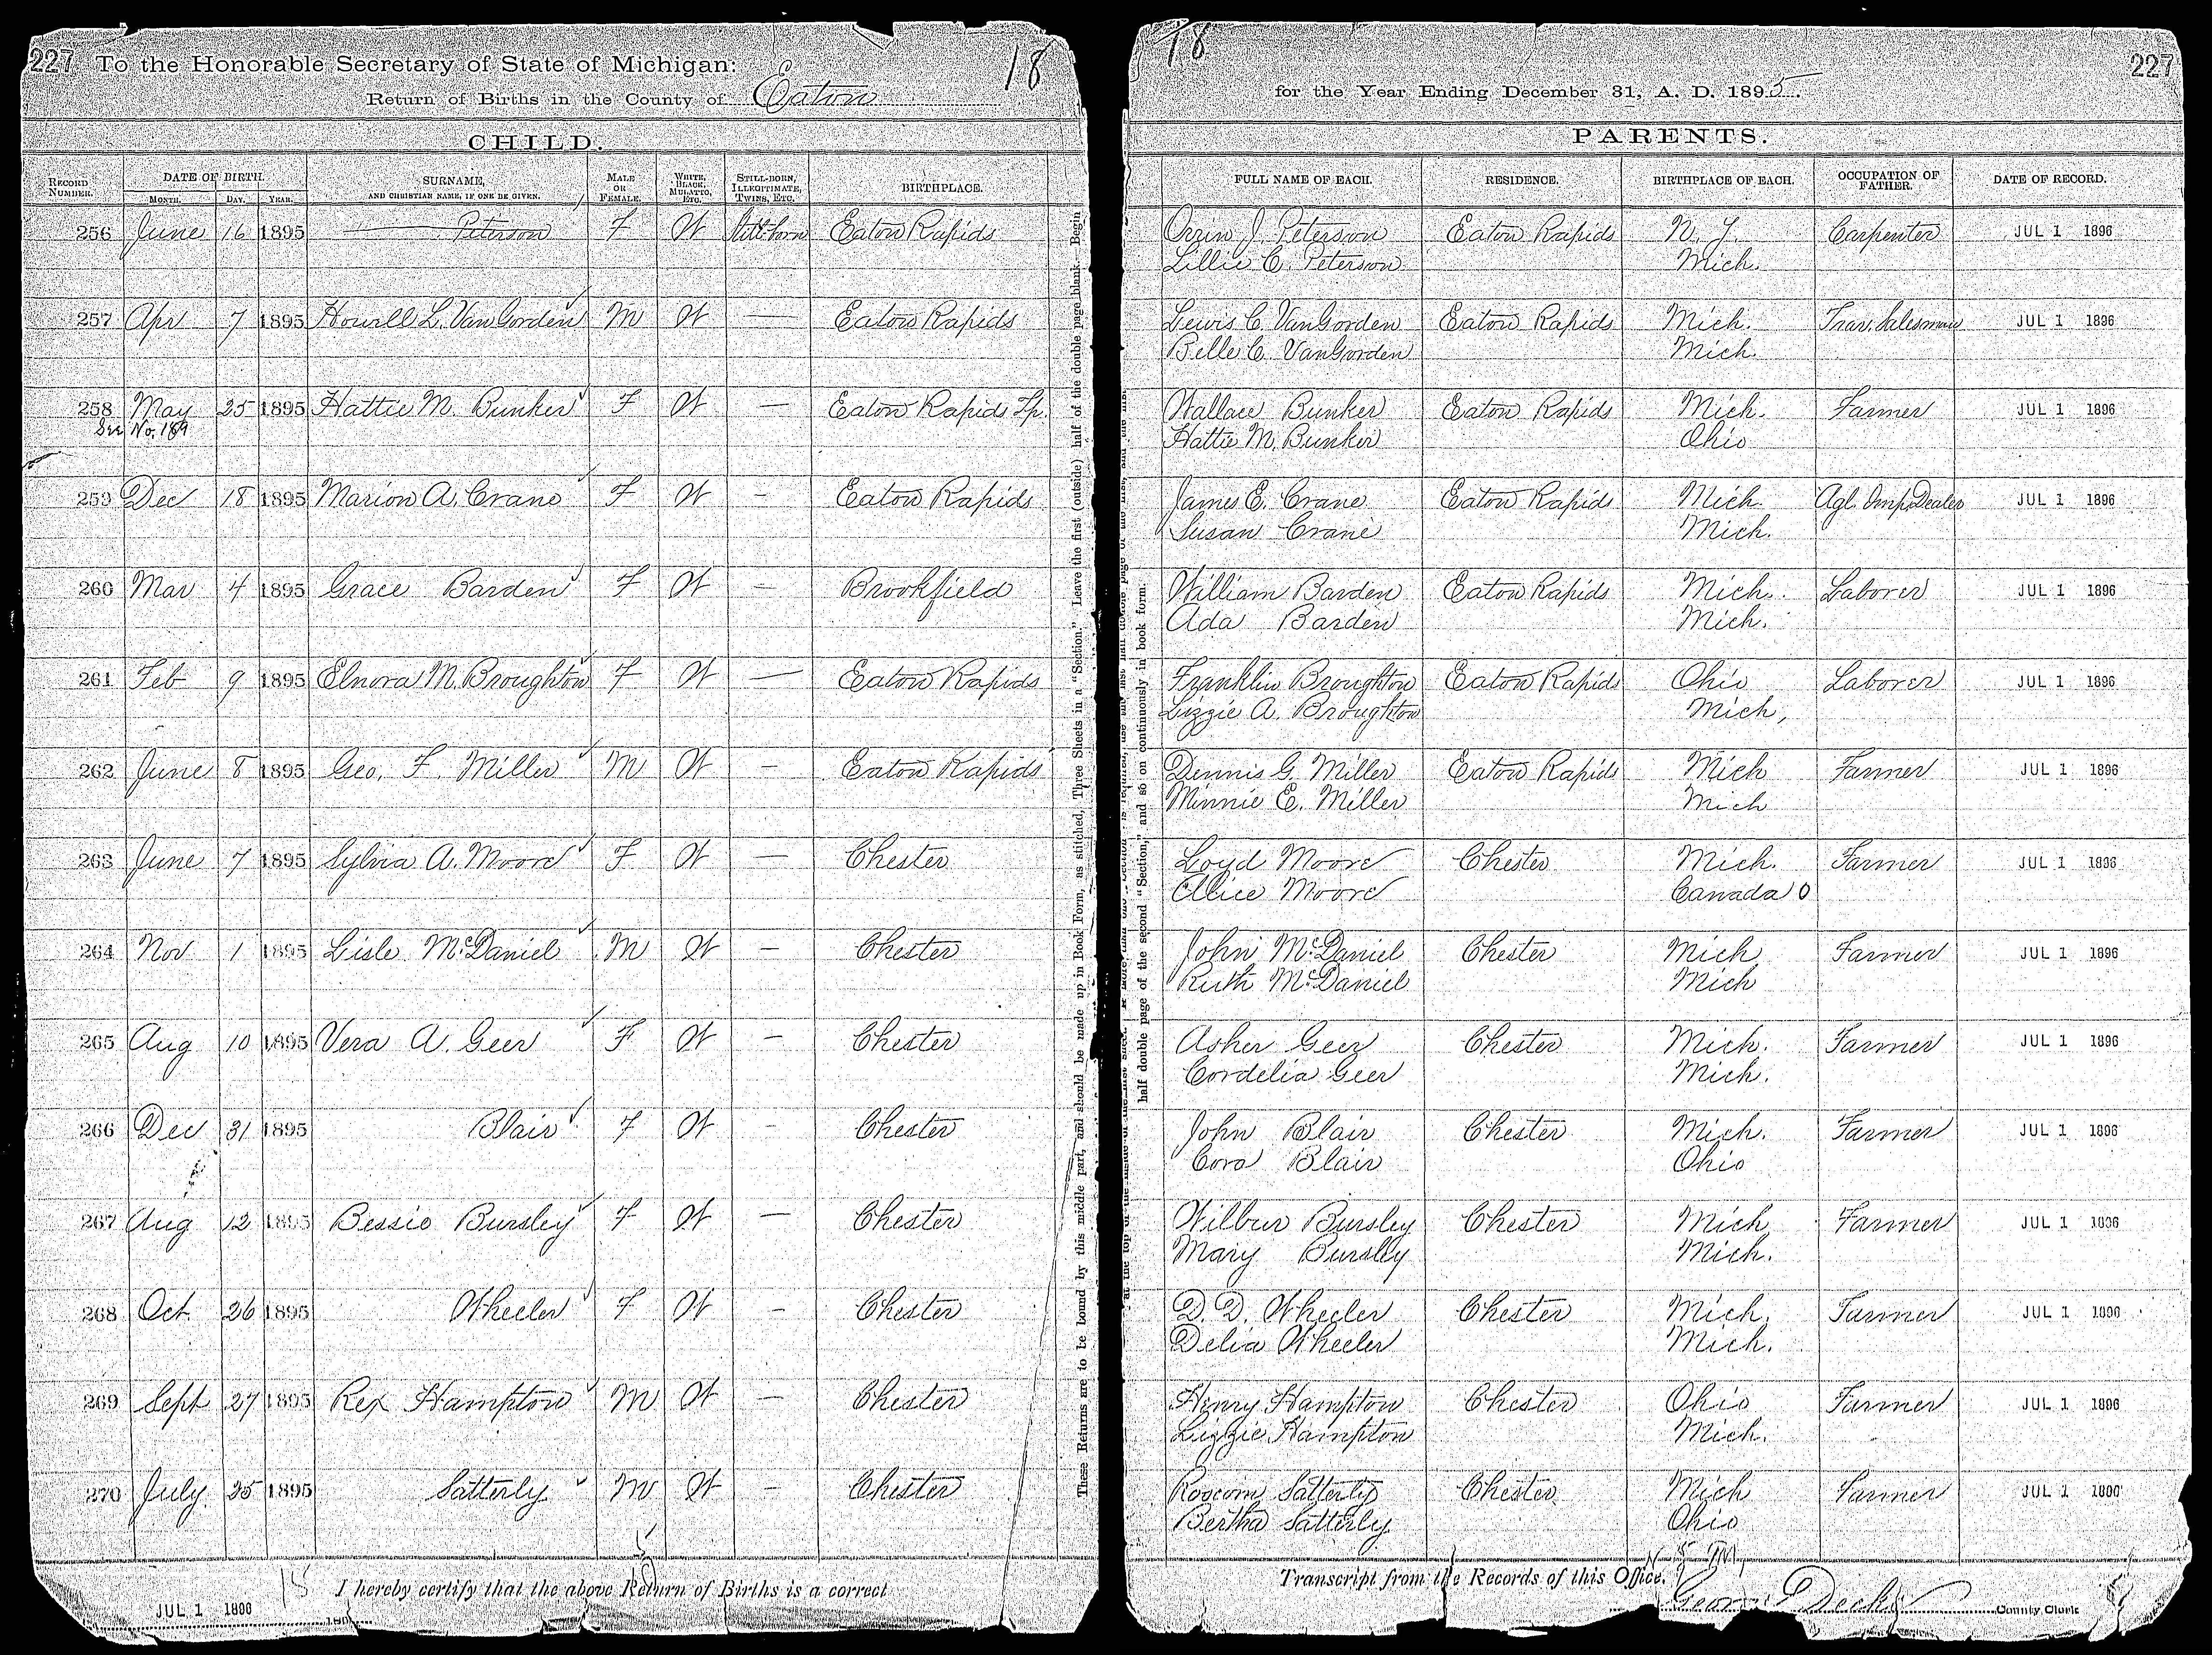 227 To the Honorable Secretary of State of Michigan: 18
Return of Births in the County of Eaton
CHILD.
RECORD NUMBER. DATE OF BIRTH. MONTH. DAY. YEAR. SURNAME, AND CHRISTIAN NAME, IF ONE BE GIVEN. MALE OR FEMALE. WHITE, BLACK, MULATTO, ETC. STILL-BORN, ILLEGITIMATE, TWINS, ETC. BIRTHPLACE.
256 June 16 1895 —— Peterson F W Still-born Eaton Rapids
257 Apr 7 1895 Howell L. VanGorden M W — Eaton Rapids
258 May 25 1895 Hattie M. Bunker F W — Eaton Rapids Tp.
See No. 189
259 Dec 18 1895 Marion A. Crane F W — Eaton Rapids
260 Mar 4 1895 Grace Barden F W — Brookfield
261 Feb 9 1895 Elnora M. Broughton F W — Eaton Rapids
262 June 8 1895 Geo. F. Miller M W — Eaton Rapids
263 June 7 1895 Sylvia A. Moore F W — Chester
264 Nov 1 1895 Lisle McDaniel M W — Chester
265 Aug 10 1895 Vera A. Geer F W — Chester
266 Dec 31 1895 Blair F W - Chester
267 Aug 12 1895 Bessie Bursley F W — Chester
268 Oct. 26 1895 Wheeler F W — Chester
269 Sept 27 1895 Rex Hampton M W — Chester
270 July 25 1895 Satterly M W — Chester
15 I hereby certify that the above Return of Births is a correct
JUL 1 1896
These Returns are to be bound by this middle part, and should be made up in Book Form, as stitched, Three Sheets in a "Section." Leave the first (outside) half of the double page blank. Begin
half double page of the second "Section," and so on continuously in book form.
18 227
for the Year Ending December 31, A. D. 1895.
PARENTS.
FULL NAME OF EACH. RESIDENCE. BIRTHPLACE OF EACH. OCCUPATION OF FATHER. DATE OF RECORD.
Orrin J. Peterson Eaton Rapids N. Y. Carpenter JUL 1 1896
Lillie C. Peterson Mich.
Lewis C. VanGorden Eaton Rapids Mich. Trav. Salesman JUL 1 1896
Belle C. VanGorden Mich.
Wallace Bunker Eaton Rapids Mich. Farmer JUL 1 1896
Hattie M. Bunker Ohio
James E. Crane Eaton Rapids Mich. Agl. Imp. Dealer JUL 1 1896
Susan Crane Mich.
William Barden Eaton Rapids Mich. Laborer JUL 1 1896
Ada Barden Mich.
Franklin Broughton Eaton Rapids Ohio Laborer JUL 1 1896
Lizzie A. Broughton Mich,
Dennis G. Miller Eaton Rapids Mich Farmer JUL 1 1896
Minnie E. Miller Mich
Loyd Moore Chester Mich. Farmer JUL 1 1896
Alice Moore Canada O
John McDaniel Chester Mich Farmer JUL 1 1896
Ruth McDaniel Mich
Asher Geer Chester Mich. Farmer JUL 1 1896
Cordelia Geer Mich.
John Blair Chester Mich. Farmer JUL 1 1896
Cora Blair Ohio
Wilbur Bursley Chester Mich Farmer JUL 1 1896
Mary Bursley Mich.
D. D. Wheeler Chester Mich. Farmer JUL 1 1896
Delia Wheeler Mich.
Henry Hampton Chester Ohio Farmer JUL 1 1896
Lizzie Hampton Mich.
Roscom Satterly Chester Mich Farmer JUL 1 1896
Bertha Satterly Ohio
Transcript from the Records of this Office.
County Clerk